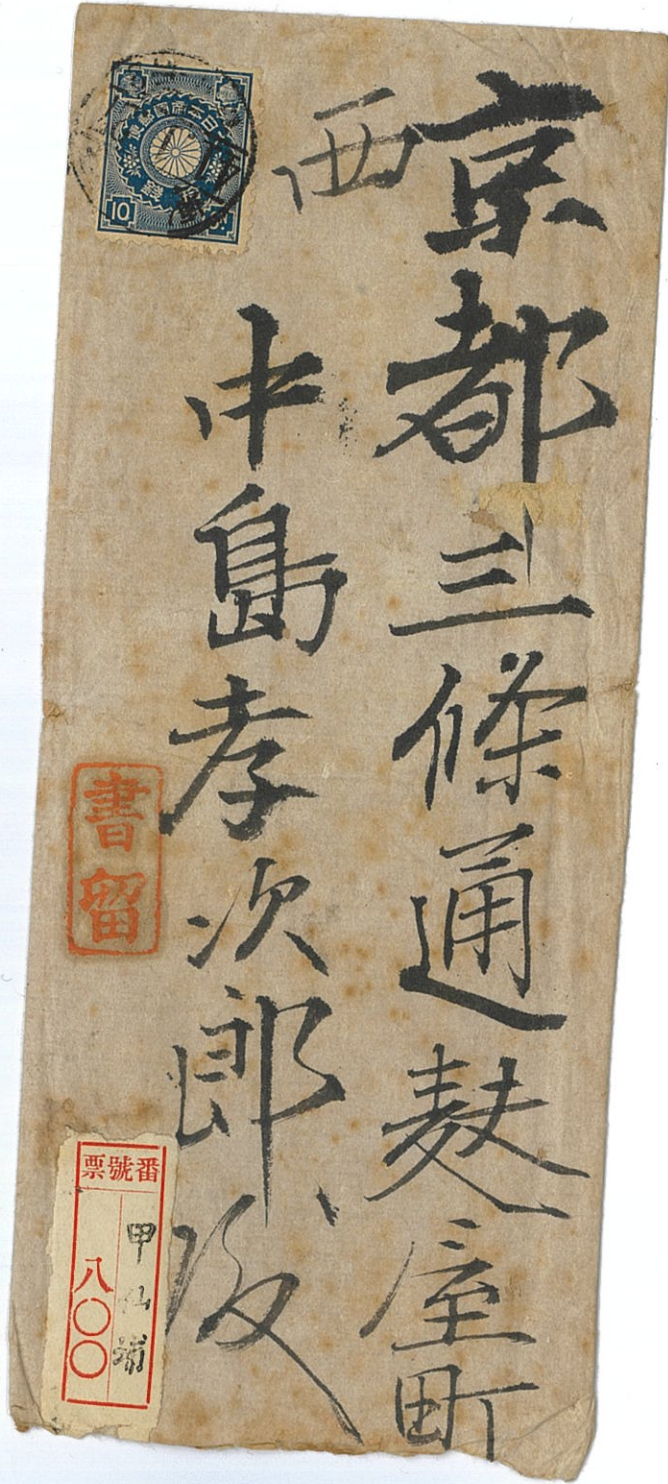 京都三條通麩屋町
西
中島孝次郎殿
書留
番號票
甲仙埔
八〇〇
10